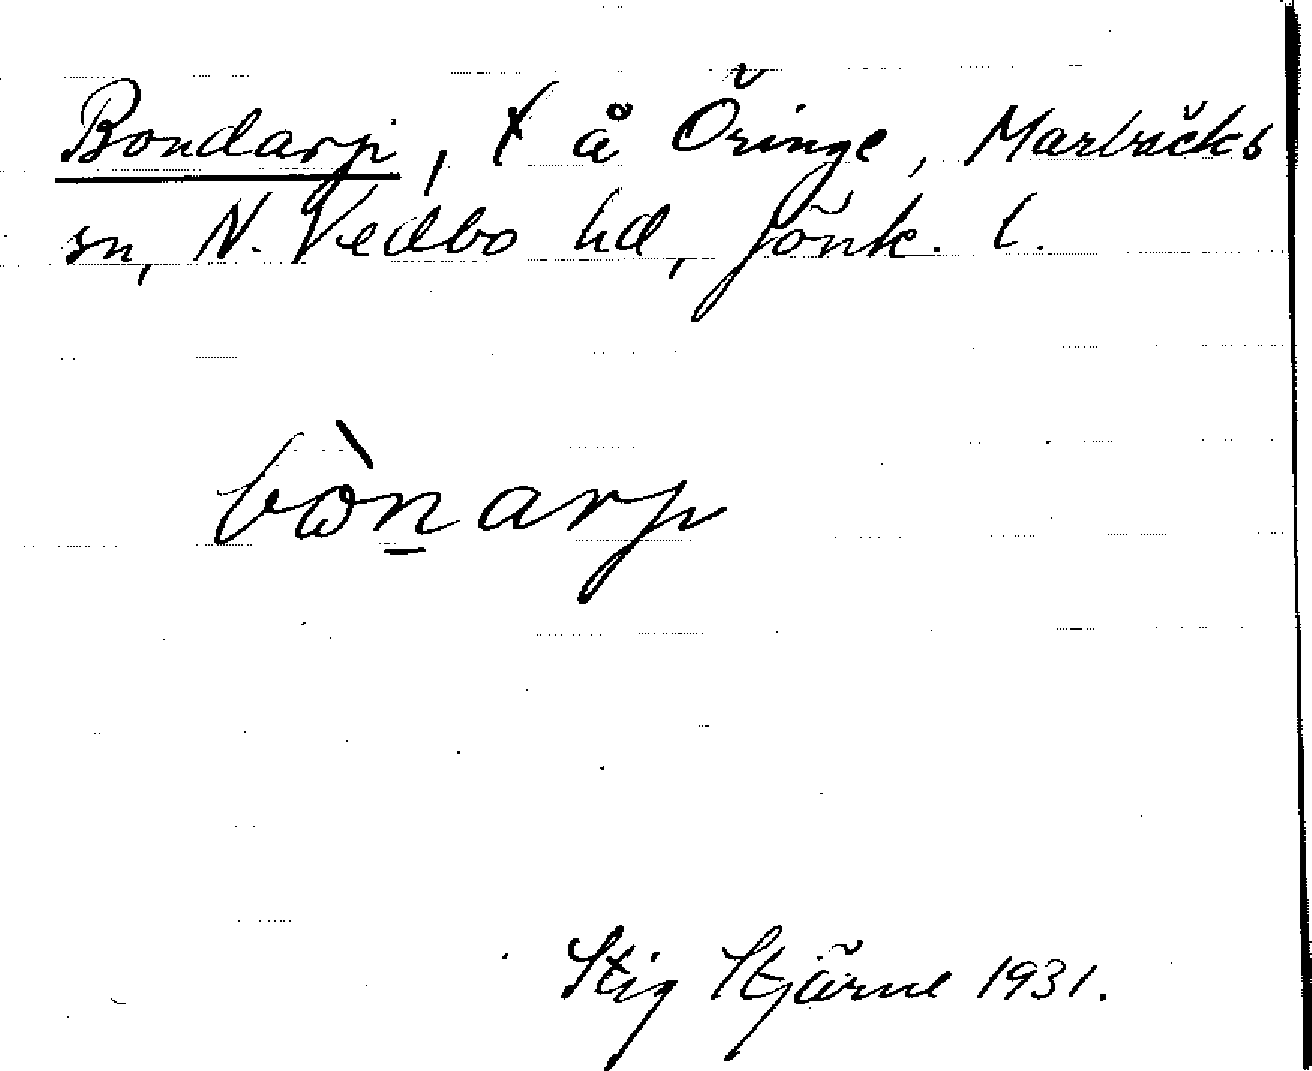 Bondarp, t å Öringe, Marbäcks
sn, N. Vedbo hd, Jönk. l.
bònarp
Stig Stjärne 1931.